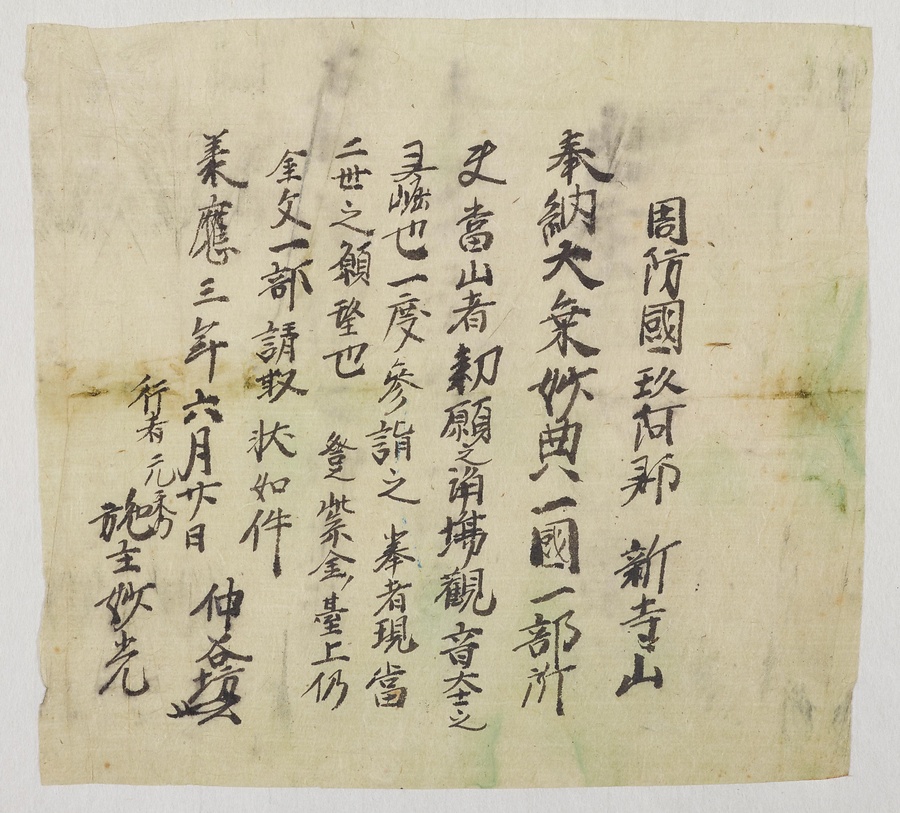 周防國玖珂郡 新寺山
奉納大乗妙典一國一部所
夫當山者勅願之道場観音大士之
霊崛也一度参詣之輩者現當
二世之願望也 登紫金臺上仍
金文一部請取状如件
承應三年六月廿日 仲谷坊
行者 元秀
施主妙光